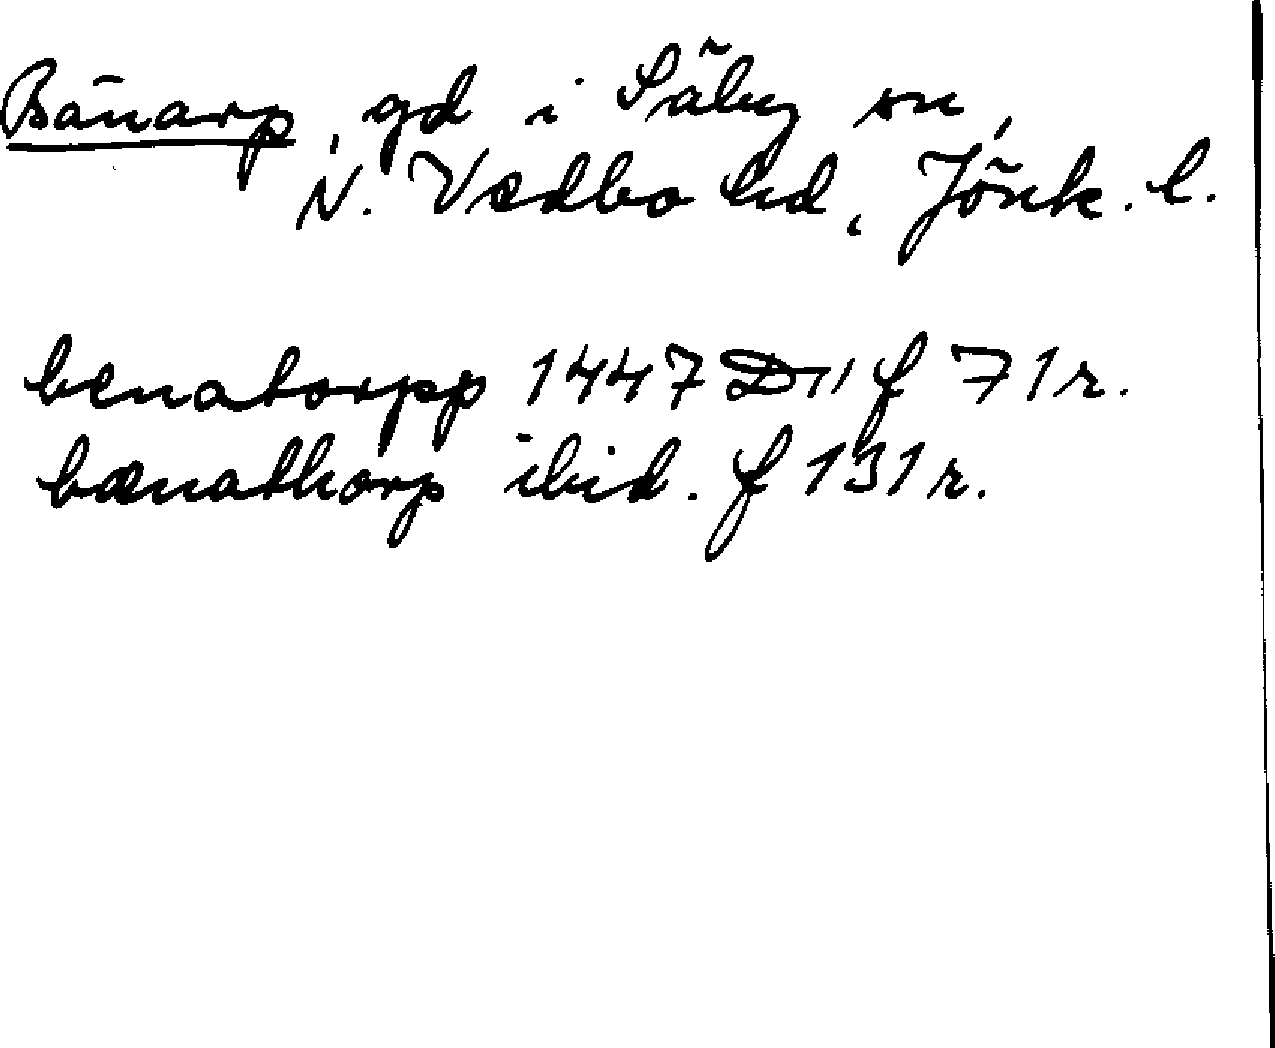 Bänarp, gd i Säby sn,
N. Vedbo hd, Jönk. l.
benatorpp 1447 D11 f 71 r.
bænathorp ibid. f 131 r.